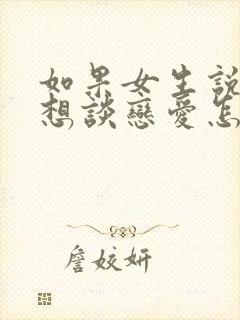 如果女生說
想談戀愛怎
詹姣妍